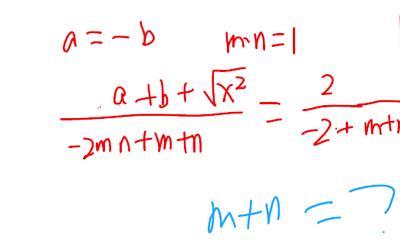 a = -b mn = 1
a + b + √x² / -2mn + m + n = 2 / -2 + m +
m + n = ?